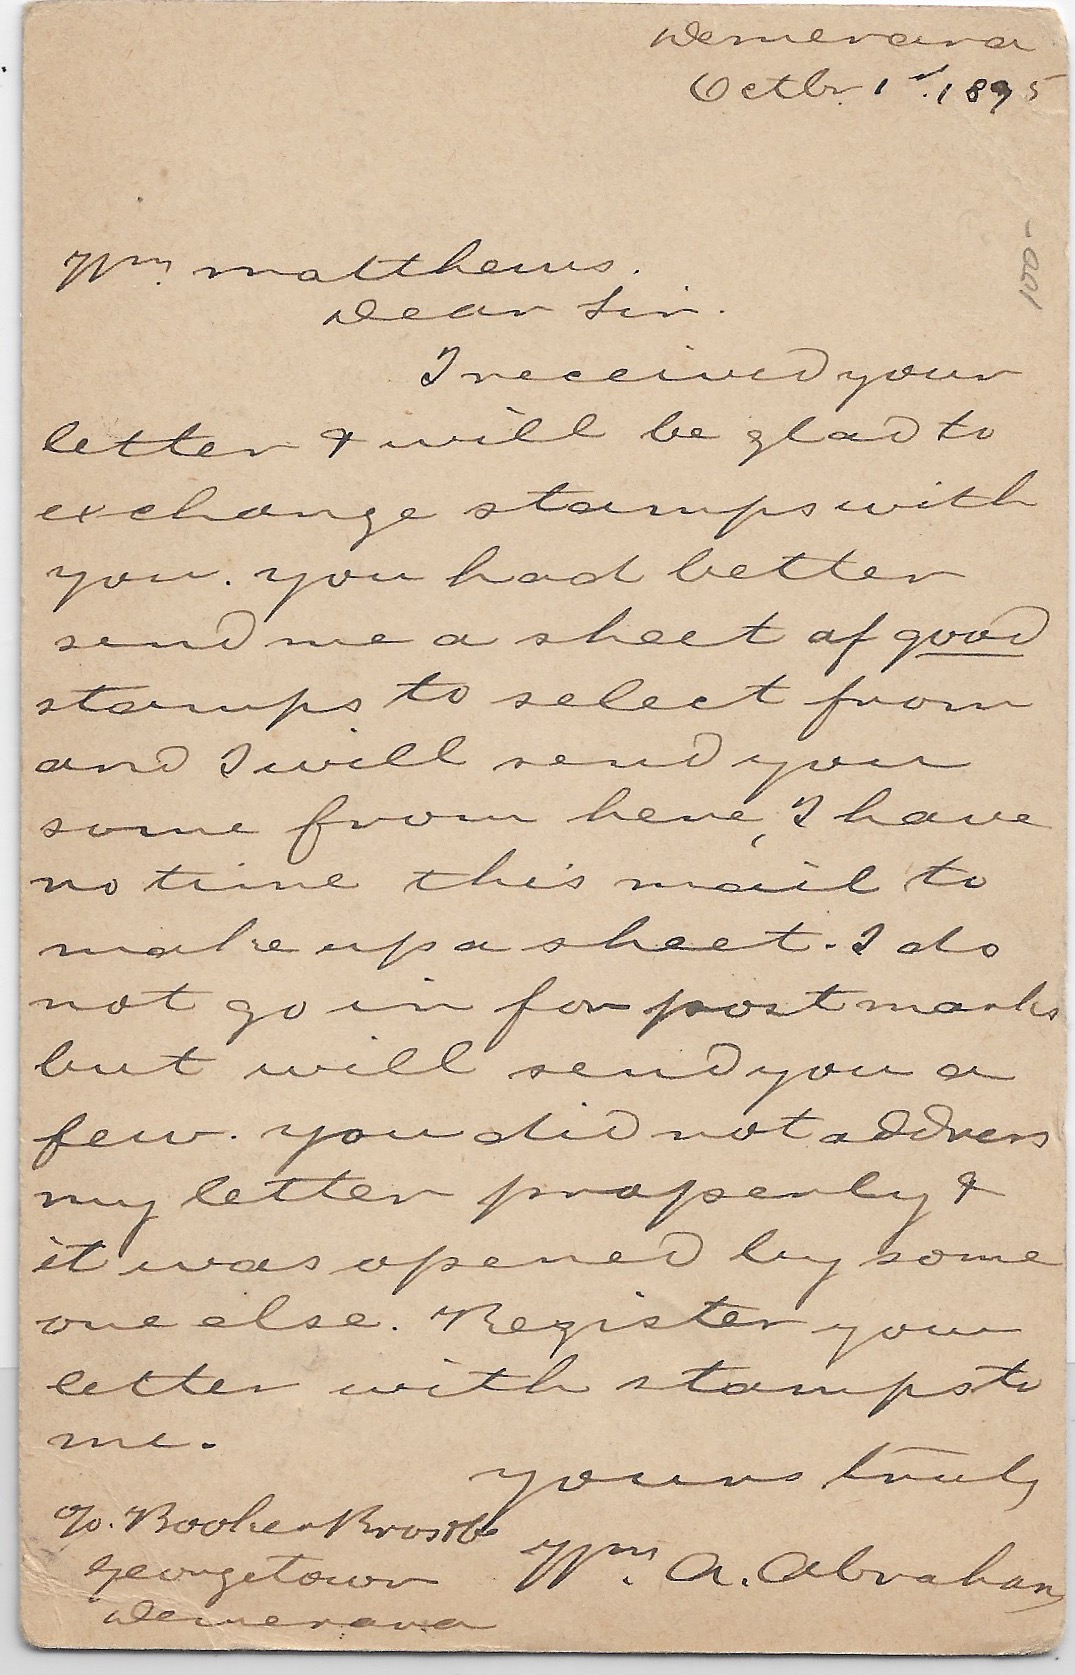 Demerara
Octbr. 1st. 1895
100-
Wm. Matthews.
Dear Sir.
I received your
letter & will be glad to
exchange stamps with
you. you had better
send me a sheet of good
stamps to select from
and I will send you
some from here, I have
no time this mail to
make up a sheet. I do
not go in for post marks
but will send you a
few. you did not address
my letter properly &
it was opened by some
one else. Register your
letter with stamps to
me.
yours truly
Wm. A. Abraham
c/o. Booker Bros & Co
Georgetown
Demerara